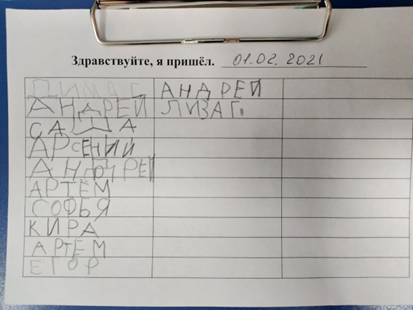 Здравствуйте, я пришёл. 01.02.2021
ДИМА Г АНДРЕЙ
АНДРЕЙ ЛИЗА Г.
САША
АРСЕНИЙ
АНДРЕЙ
АРТЁМ
СОФЬЯ
КИРА
АРТЕМ
ЕГОР